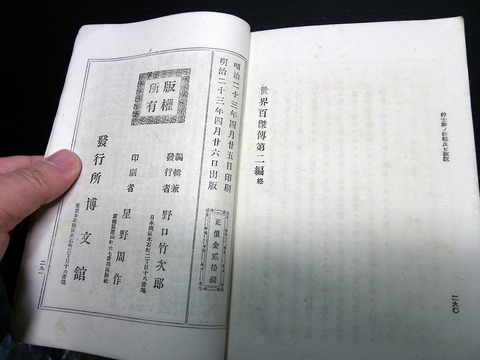 世界百傑傳第二編終
二九〇
明治二十三年四月廿五日印刷
明治二十三年四月廿六日出版
正價金貳拾錢
版權
所有
編輯兼
發行者
野口竹次郎
日本橋區本石町三丁目十六番地
印刷者
星野周作
發行所
博文館
東京日本橋區本石町三丁目十六番地
二九一